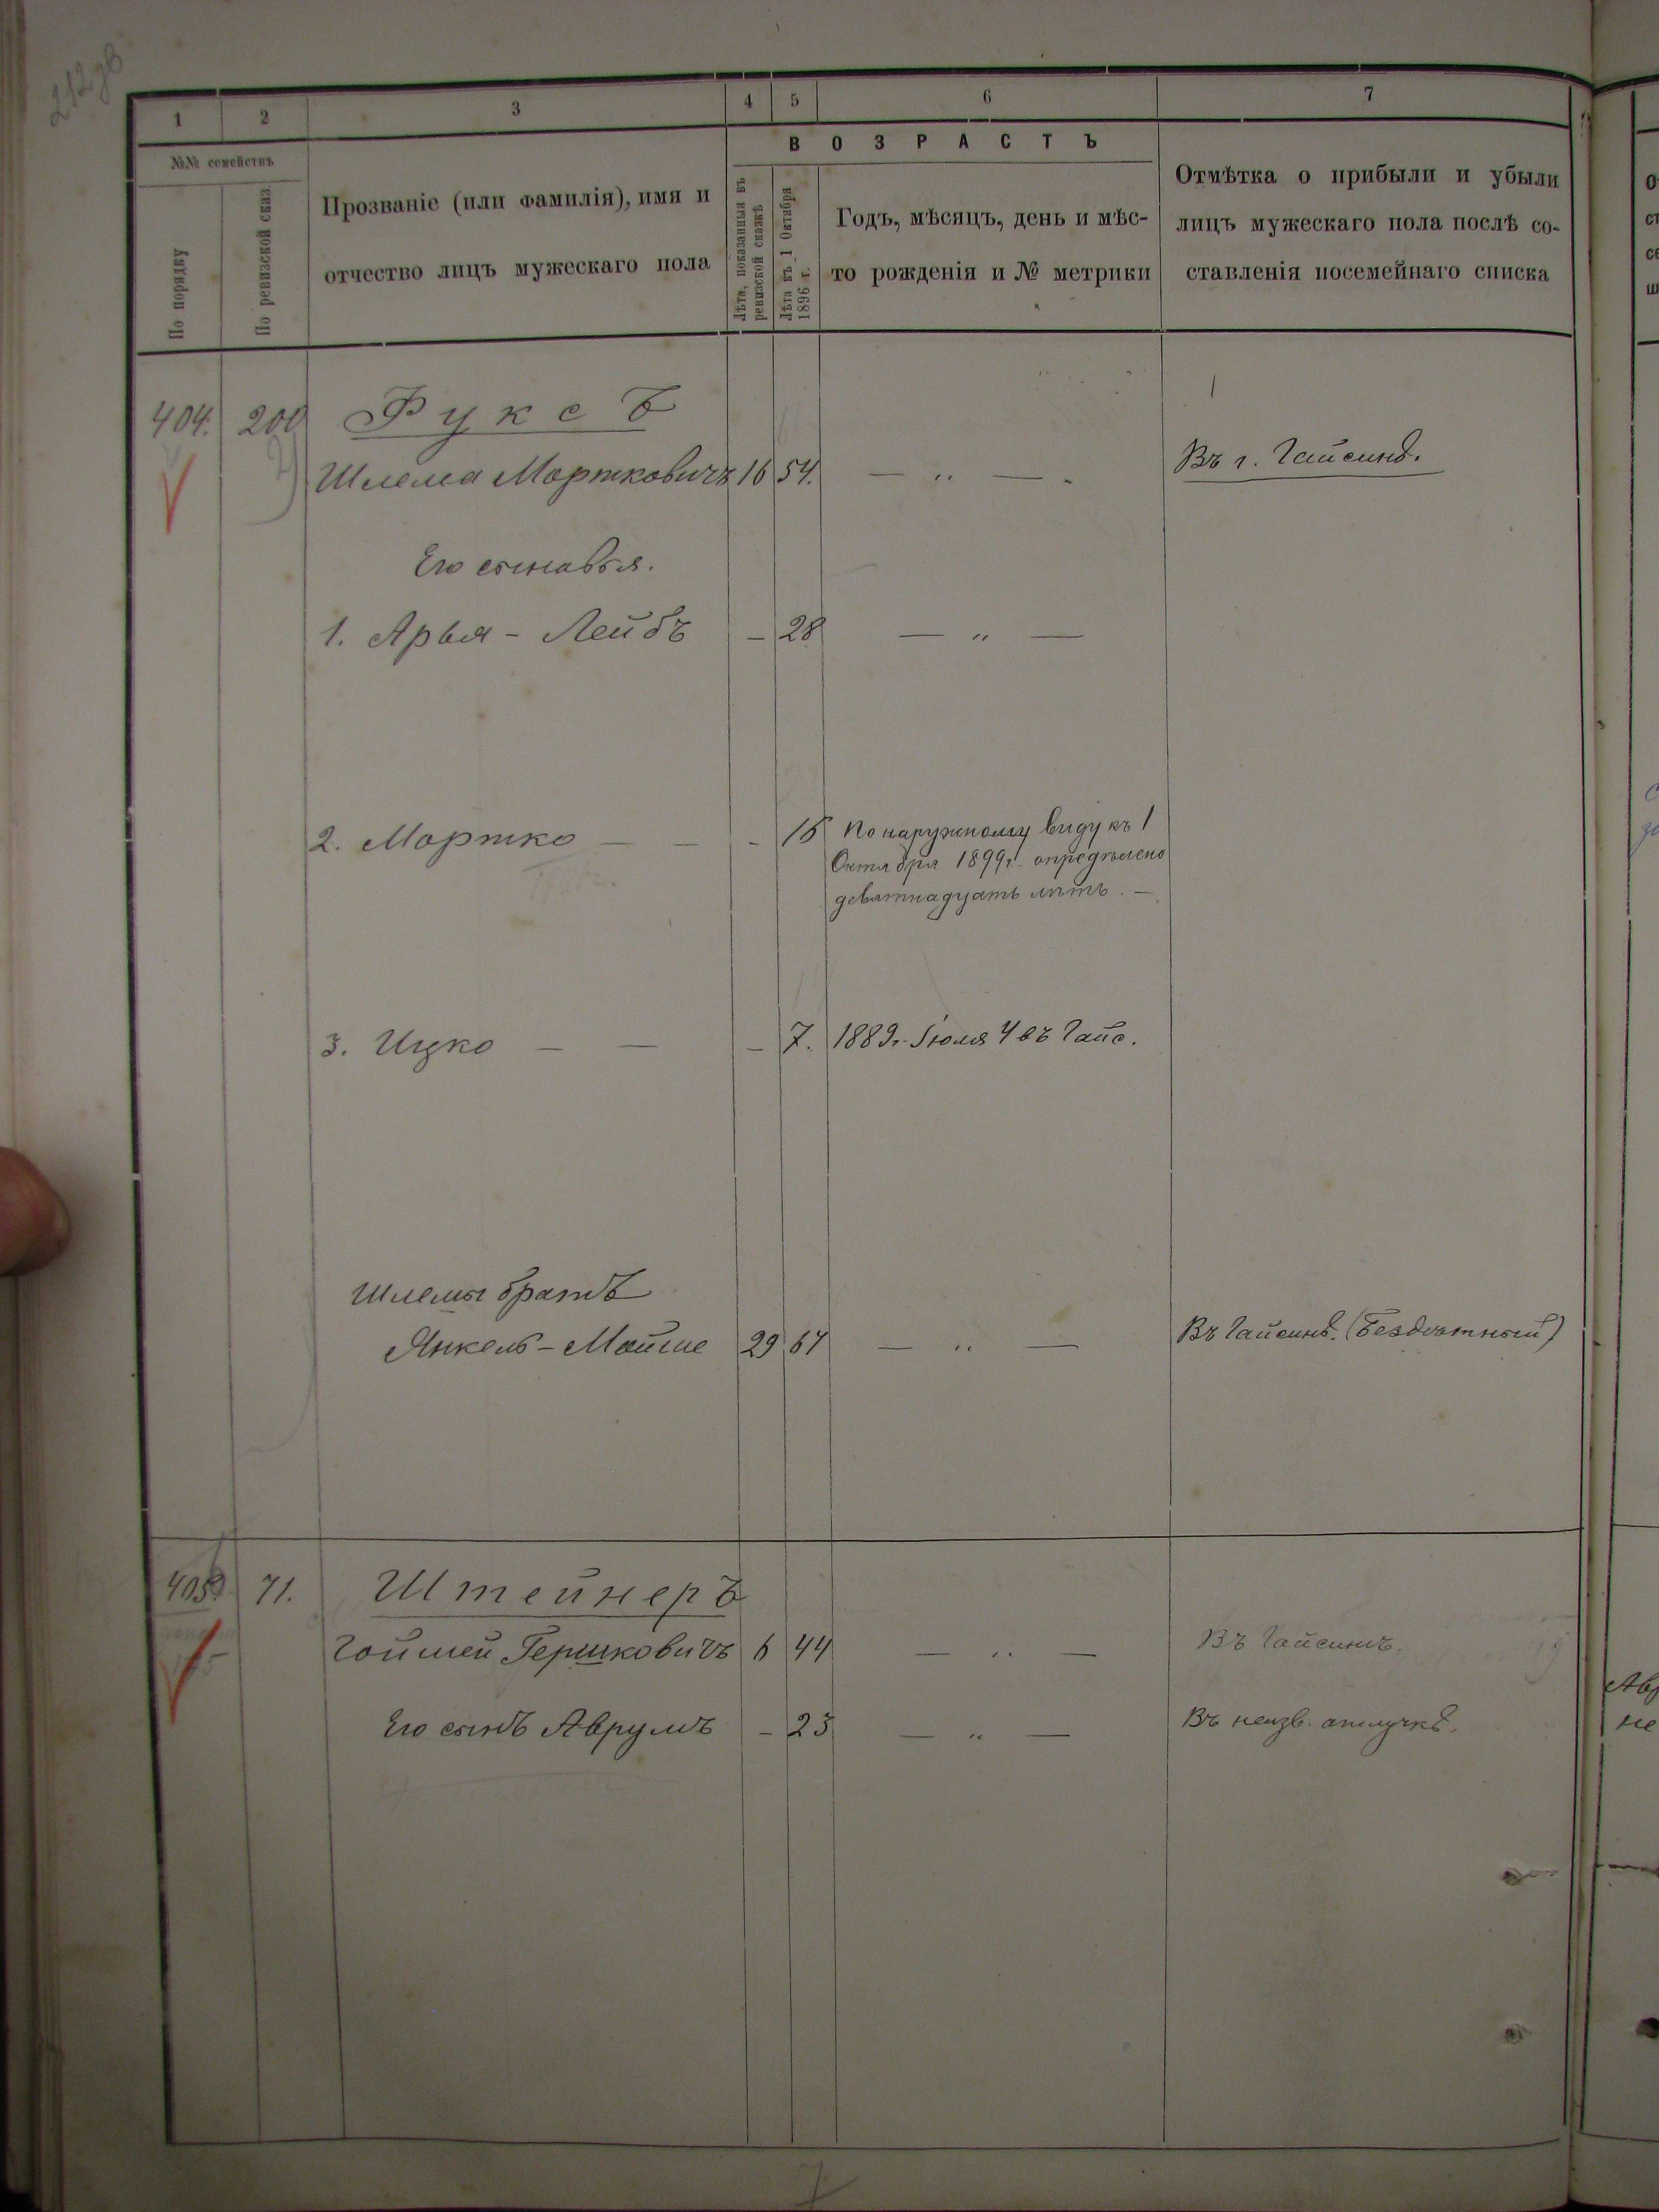 212об
1 2 3 4 5 6 7
№№ семействъ
По порядку
По ревизской сказ.
Прозваніе (или фамилія), имя и
отчество лицъ мужескаго пола
ВОЗРАСТЪ
Лѣта, показанныя въ
ревизской сказкѣ
Лѣта къ 1 Октября
1896 г.
Годъ, мѣсяцъ, день и мѣс-
то рожденія и № метрики
Отмѣтка о прибыли и убыли
лицъ мужескаго пола послѣ со-
ставленія посемейнаго списка
404. 200 Фуксъ
Шлема Мортковичъ 16 54. — „ — Въ г. Гайсинѣ.
Его сыновья.
1. Арья - Лейбъ — 28 — „ —
2. Мортко — — - 16 По наружному виду къ 1
Октября 1899 г. опредѣлено
девятнадцать лѣтъ. —
3. Ицко — — - 7. 1889 г. Іюля 4 въ Гайс.
Шлемы братъ
Янкель - Мойше 29 67 — „ — Въ Гайсинѣ. (Бездѣтный)
405 71. Штейнеръ
Гоишей Гершковичъ 6 44 — „ — Въ Гайсинѣ.
Его сынъ Аврумъ — 23 — „ — Въ неизв. отлучкѣ.
7